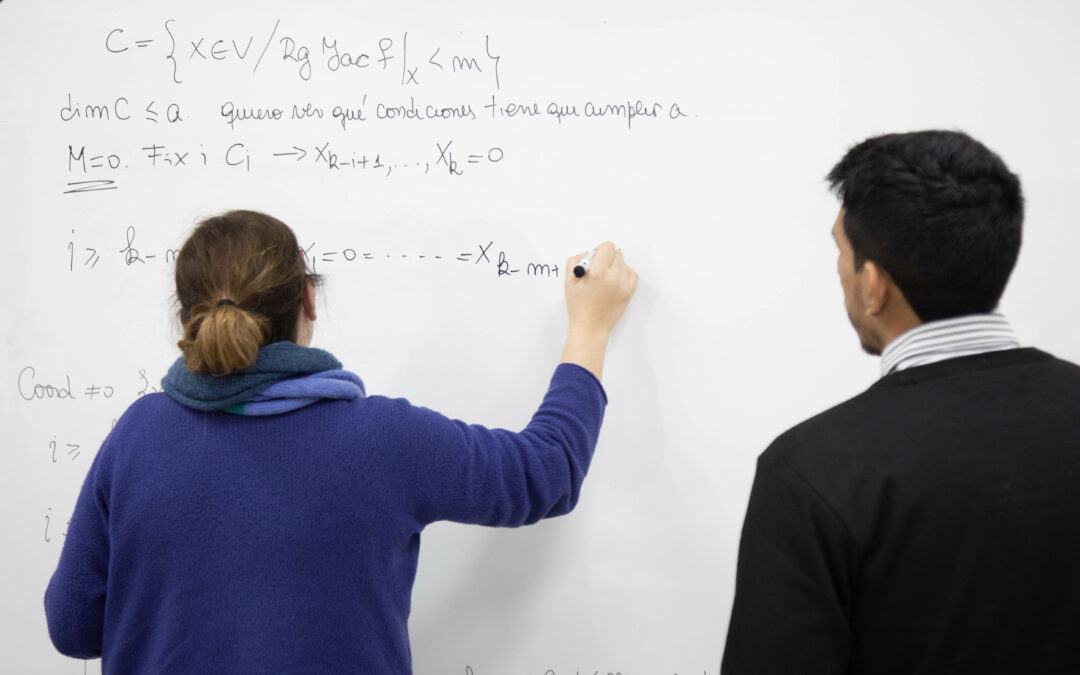 C = { x ∈ V / Rg Jac f |x < m }
dim C ≤ a. quiero ver qué condiciones tiene que cumplir a.
M=0. Fix i Ci → Xk-i+1, ..., Xk = 0
i ≥ k-m X1 = 0 = ..... = Xk-m+
Coord ≠0
i ≥
i